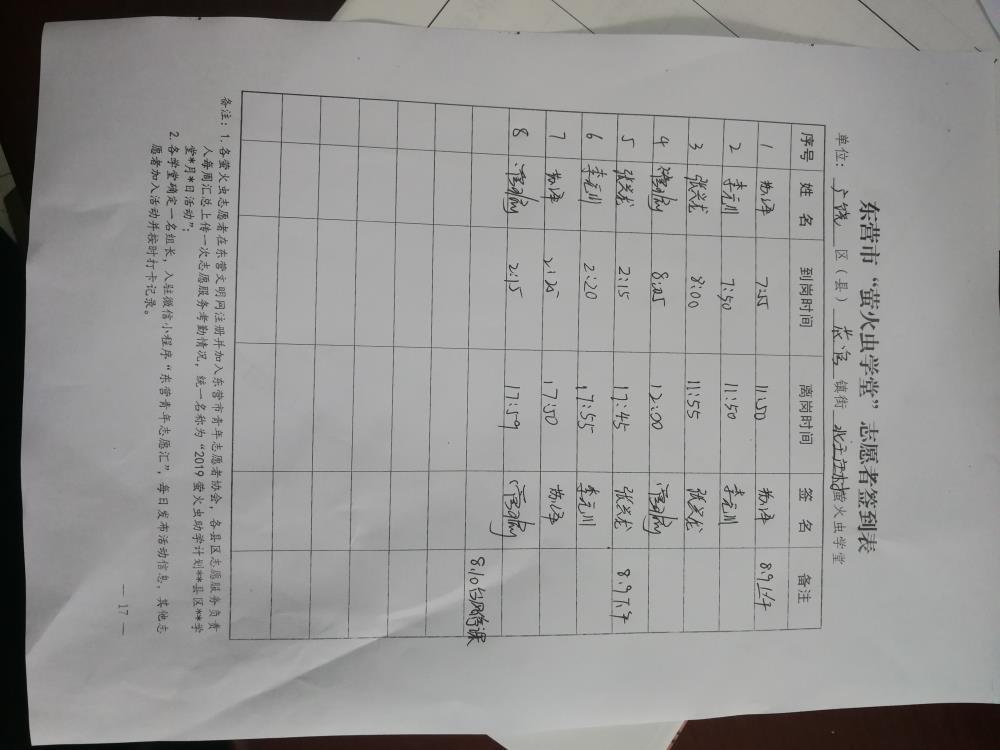 东营市“萤火虫学堂”志愿者签到表
单位：广饶 区（县） 镇街 萤火虫学堂
序号 姓 名 到岗时间 离岗时间 签 名 备注
1 7:55 11:50 8.9上午
2 李元川 7:50 11:50 李元川
3 张兴龙 8:00 11:55 张兴龙
4 8:05 12:00
5 张兴龙 2:15 17:45 张兴龙 8.9下午
6 李元川 2:20 17:55 李元川
7 2:25 17:50
8 2:15 17:59
8.10台风停课
备注：1. 各萤火虫志愿者在东营文明网注册并加入东营市青年志愿者协会，各县区志愿服务负责
人每周汇总上传一次志愿服务考勤情况，统一名称为“2019萤火虫助学计划**县区**学
堂*月*日活动”；
2. 各学堂确定一名组长，入驻微信小程序“东营青年志愿汇”，每日发布活动信息，其他志
愿者加入活动并按时打卡记录。
— 17 —